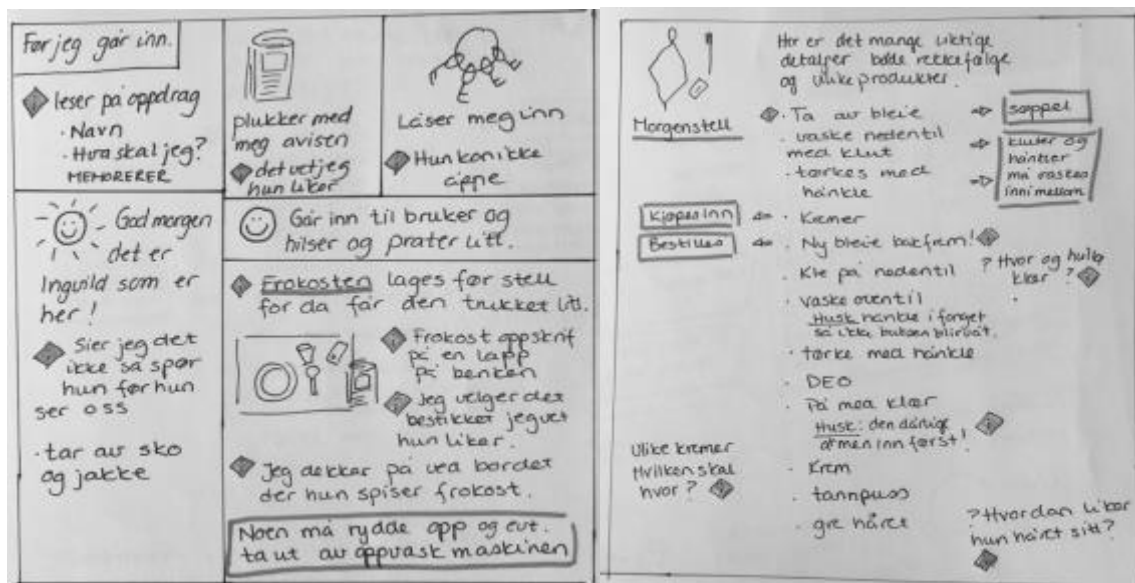 Før jeg går inn.
leser på oppdrag
· Navn
· Hva skal jeg?
MEMORERER
plukker med
meg avisen
det vet jeg
hun liker
Låser meg inn
Hun kan ikke
åpne
God morgen
det er
Ingvild som er
her!
Sier jeg det
ikke så spør
hun før hun
ser oss
· tar av sko
og jakke
Går inn til bruker og
hilser og prater litt.
Frokosten lages før stell
for da får den trukket litt.
Frokost oppskrift
på en lapp
på benken
Jeg velger det
bestikket jeg vet
hun liker.
Jeg dekker på ved bordet
der hun spiser frokost.
Noen må rydde opp og evt.
ta ut av oppvaskmaskinen
Her er det mange viktige
detaljer både rekkefølge
og ulike produkter.
Morgenstell
· Ta av bleie
søppel
· vaske nedentil
med klut
· tørkes med
håndkle
kluter og
må vaskes
innimellom
Kjøpes inn
· Kremer
Bestilles
· Ny bleie bakfrem!
· Kle på nedentil
? Hvor og hvilke
klær?
· vaske oventil
Husk håndkle i fanget
så ikke buksen blir våt.
· tørke med håndkle
· DEO
· På med klær
Husk: den dårlige
armen inn først!
Ulike kremer
Hvilken skal
hvor?
· Krem
· tannpuss
· gre håret
? Hvordan liker
hun håret sitt?